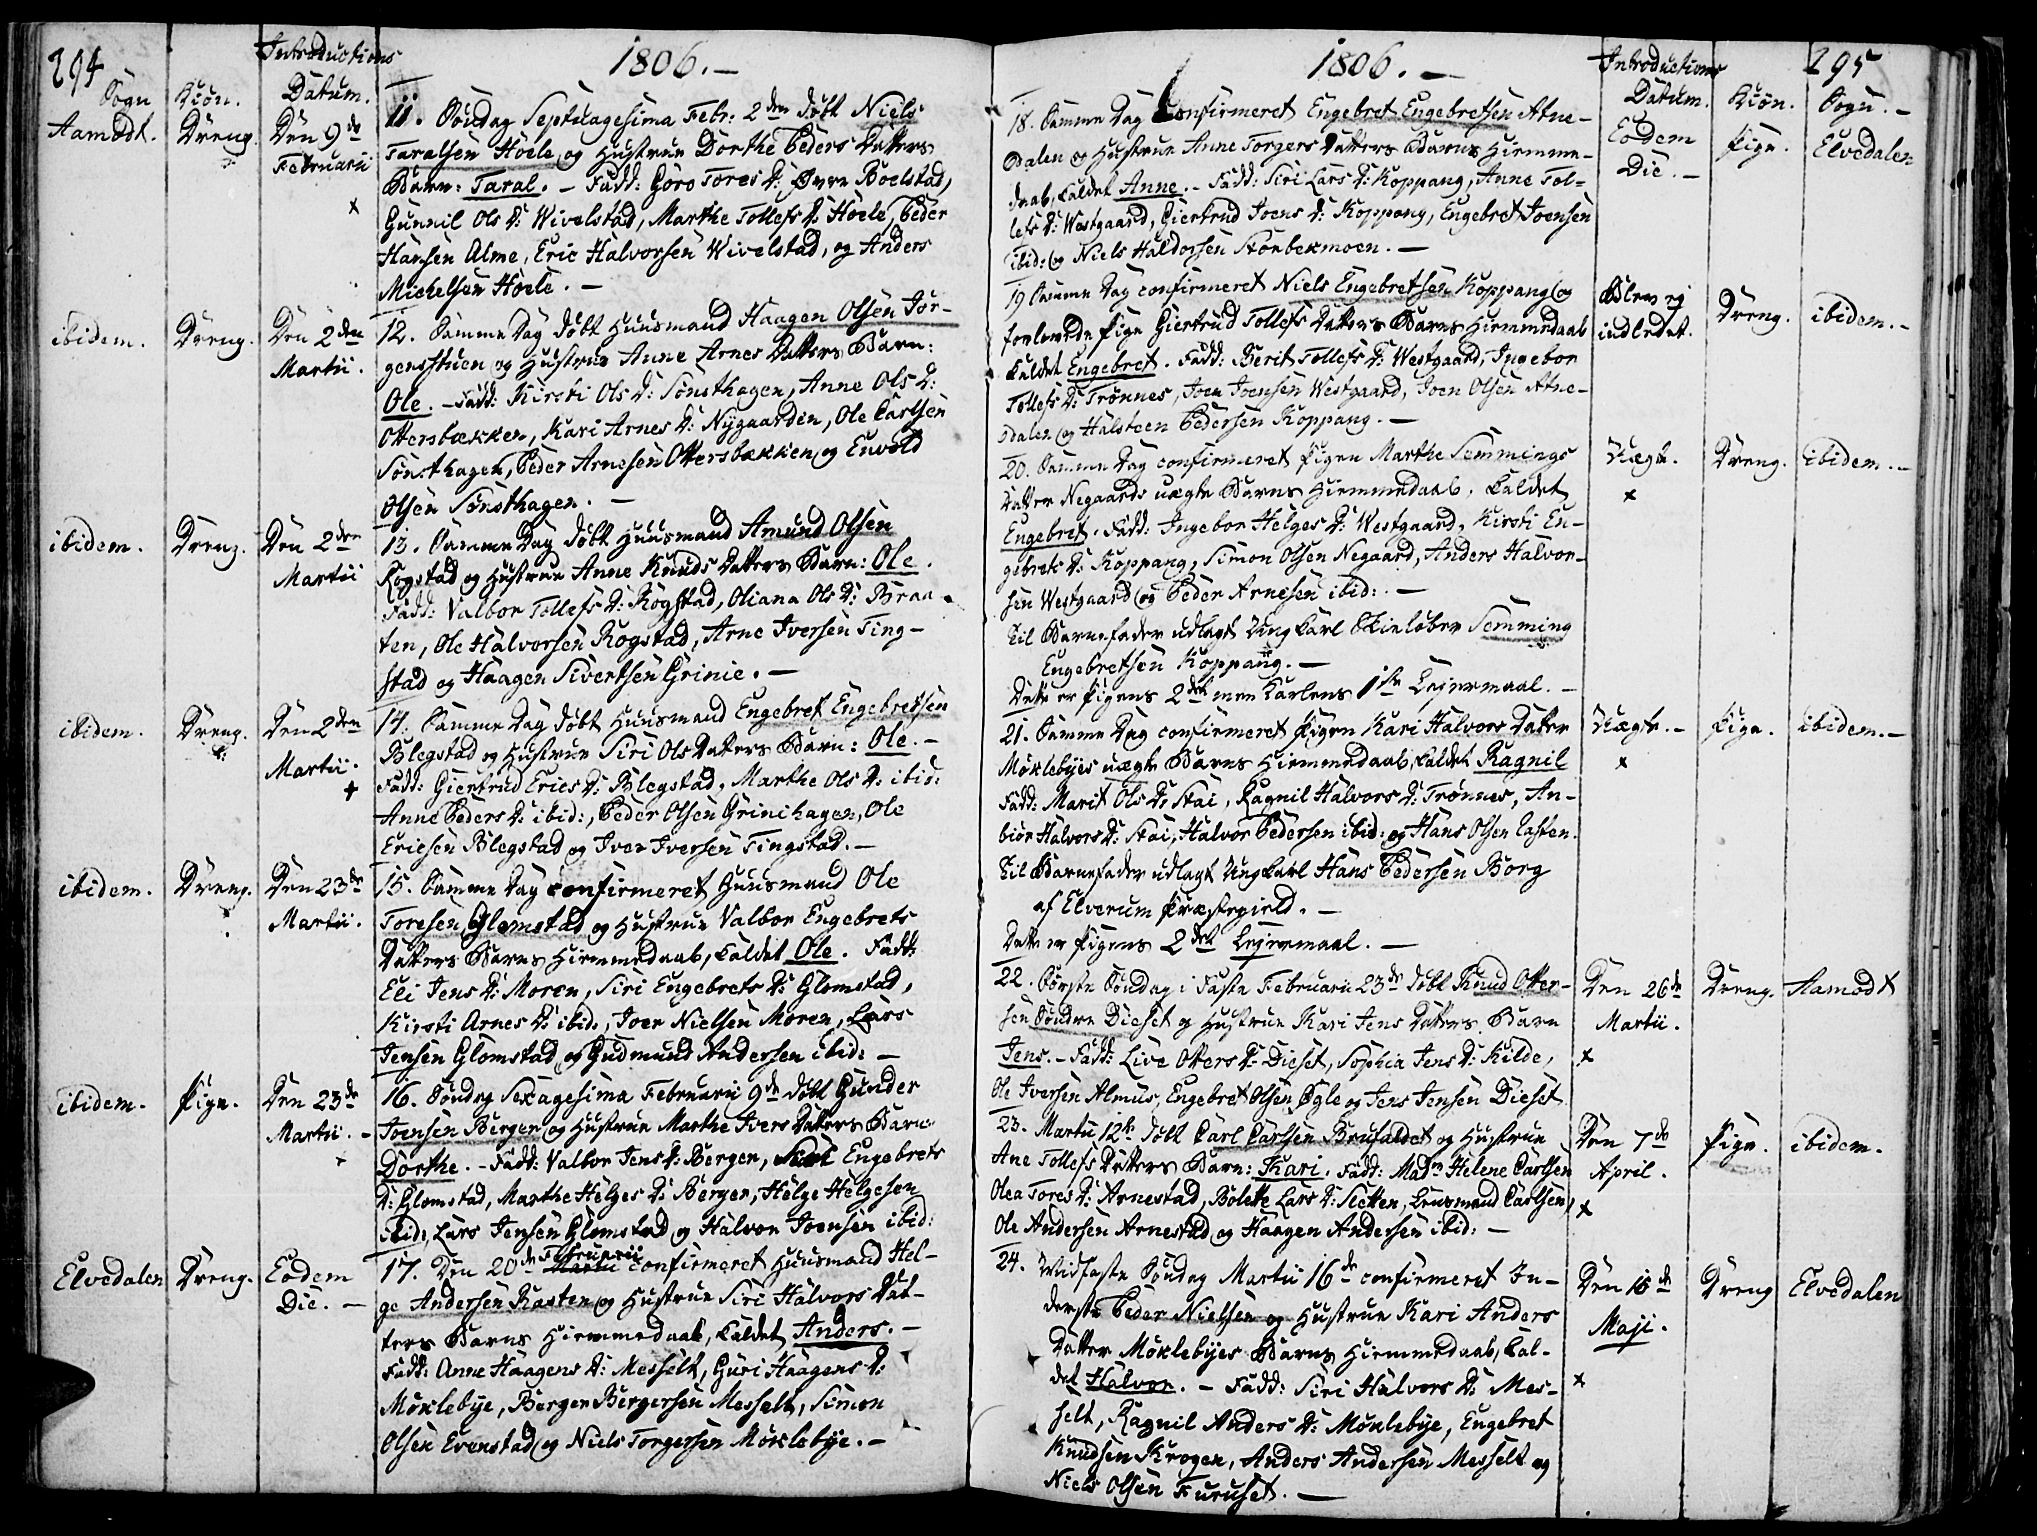 294
1806. –
Introductions
Sogn
Kiøn.
Datum.
Aamodt.
Dreng.
Den 9de
Februarii
11. Søndag Septuagesima Febr: 2den døbt Niels
Taralsen Hoele og Hustrue Dorthe Peders Datters
Barn: Taral. – Fadd: Goro Tores D: Øvre Boelstad,
Gunnil Ols D: Wivelstad, Marthe Tollefs D: Hoele, Peder
Hansen Alme, Eric Halvorsen Wivelstad, og Anders
Michelsen Hoele. –
ibidem.
Dreng.
Den 2den
Martii.
12. Samme Dag døbt Huusmand Haagen Olsen Jør-
gensstuen og Hustrue Anne Arnes Datters Barn:
Ole. – Fadd: Kirsti Ols D: Sønsthagen, Anne Ols D:
Ottersbækken, Kari Arnes D: Nygaarden, Ole Carlsen
Sønsthagen, Peder Arnesen Ottersbækken og Envold
Olsen Sønsthagen. –
ibidem.
Dreng.
Den 2den
Martii
13. Samme Dag døbt Huusmand Amund Olsen
Rogstad og Hustrue Anne Knuds Datters Barn: Ole.
Fadd: Valbor Tollefs D: Rogstad, Oliana Ols D: Braa-
ten, Ole Halvorsen Rogstad, Arne Iversen Ting-
stad og Haagen Sivertsen Grinie. –
ibidem.
Dreng.
Den 2den
Martii.
14. Samme Dag døbt Huusmand Engebret Engebretsen
Blegstad og Hustrue Siri Ols Datters Barn: Ole. –
Fadd: Giertrud Erics D: Blegstad, Marthe Ols D: ibid:
Anne Peders D: ibid:, Peder Olsen Grinihagen, Ole
Ericsen Blegstad og Iver Iversen Tingstad. –
ibidem.
Dreng.
Den 23de
Martii.
15. Samme Dag confirmeret Huusmand Ole
Toresen Glomstad og Hustrue Valbor Engebrets
Datters Barns Hiemmedaab, kaldet Ole. Fadd:
Eli Jens D: Moren, Siri Engebrets D: Glomstad,
Kirsti Arnes D: ibid:, Joer Nielsen Moren, Lars
Jensen Glomstad og Gudmund Andersen ibid: –
ibidem.
Pige.
Den 23de
Martii. –
16. Søndag Sexagesima Februarii 9de døbt Gunder
Joensen Bergen og Hustrue Marthe Ivers Datters Barn
Dorthe. – Fadd: Valbor Jens D: Bergen, Siri Engebrets
D: Glomstad, Marthe Helges D: Bergen, Helge Helgesen
ibid:, Lars Jensen Glomstad og Halvor Joensen ibid:
Elvedalen
Dreng.
Eodem
Die. –
Februarii
17. Den 20de Martii confirmeret Huusmand Hel-
ge Andersen Kasten og Hustrue Siri Halvors Dat-
ters Barns Hiemmedaab, kaldet Anders. –
Fadd: Anne Haagens D: Messelt, Guri Haagens D:
Møklebye, Berger Bergersen Messelt, Simon
Olsen Evenstad og Niels Torgersen Møklebye. –
1806. –
Introductions
295
Datum.
Kiøn.
Sogn. –
Eodem
Die. –
Pige.
Elvedalen
18. Samme Dag confirmeret Engebret Engebretsen Atne-
dalen og Hustrue Anne Torgers Datters Barns Hiemme-
daab, kaldet Anne. – Fadd: Siri Lars D: Koppang, Anne Tol-
lefs D: Westgaard, Giertrud Joens D: Koppang, Engebret Joensen
ibid: og Niels Haldorsen Storbekmoen. –
Blev ej
indledet.
Dreng.
ibidem. –
19 Samme Dag confirmeret Niels Engebretsen Koppang og
forlovede Pige Giertrud Tollefs Datters Barns Hiemmedaab
kaldet Engebret. Fadd: Berit Tollefs D: Westgaard, Ingebor
Tollefs D: Trønnes, Joen Joensen Westgaard, Joen Olsen Atne-
dalen og Halsteen Pedersen Koppang. –
Uægte.
Dreng.
ibidem. –
20. Samme Dag confirmeret Pigen Marthe Semmings
Datter Negaards uægte Barns Hiemmedaab, kaldet
Engebret. Fadd: Ingebor Helges D: Westgaard, Kirsti En-
gebrets D: Koppang, Simon Olsen Negaard, Anders Halvor-
sen Westgaard og Peder Arnesen ibid: –
Til Barnefader udlagt Ungkarl Skieløber Semming
Engebretsen Koppang. –
Dette er Pigens 2det men Karlens 1ste Leiermaal. –
Uægte. –
Pige.
ibidem. –
21. Samme Dag confirmeret Pigen Kari Halvors Datter
Møklebyes uægte Barns Hiemmedaab, kaldet Ragnil
Fadd: Marit Ols D: Stai, Ragnil Halvors D: Trønnes, An-
biør Halvors D: Stai, Halvor Pedersen ibid: og Hans Olsen Casten.
Til Barnefader udlagt Ungkarl Hans Pedersen Borg
af Elverum Præstegield. –
Dette er Pigens 2det Lejermaal. –
Den 26de
Martii.
Dreng.
Aamodt
22. Første Søndag i Faste Februarii 23de døbt Knud Otter-
sen Søndre Dieset og Hustrue Kari Jens Datters Barn
Jens. – Fadd: Live Otters D: Dieset, Sophia Jens D: Kilde,
Ole Iversen Almus, Engebret Olsen Øgle og Jens Jensen Dieset
Den 7de
April.
Pige.
ibidem.
23. Martii 12te døbt Carl Carlsen Brufaldet og Hustrue
Ane Tollefs Datters Barn: Kari. Fadd: Madm Helene Carlsen
Olea Tores D: Arnestad, Bolette Lars D: Sletten, Lensmand Carlsen,
Ole Andersen Arnestad og Haagen Andersen ibid: –
Den 15de
Maji.
Dreng
Elvedalen
24. Midfaste Søndag Martii 16de confirmeret In-
derste Peder Nielsen og Hustrue Kari Anders
Datter Møklebyes Barns Hiemmedaab, kal-
det Halvor. – Fadd: Siri Halvors D: Mes-
selt, Ragnil Anders D: Møklebye, Engebret
Knudsen Krogen, Anders Andersen Messelt og
Niels Olsen Furuset. –